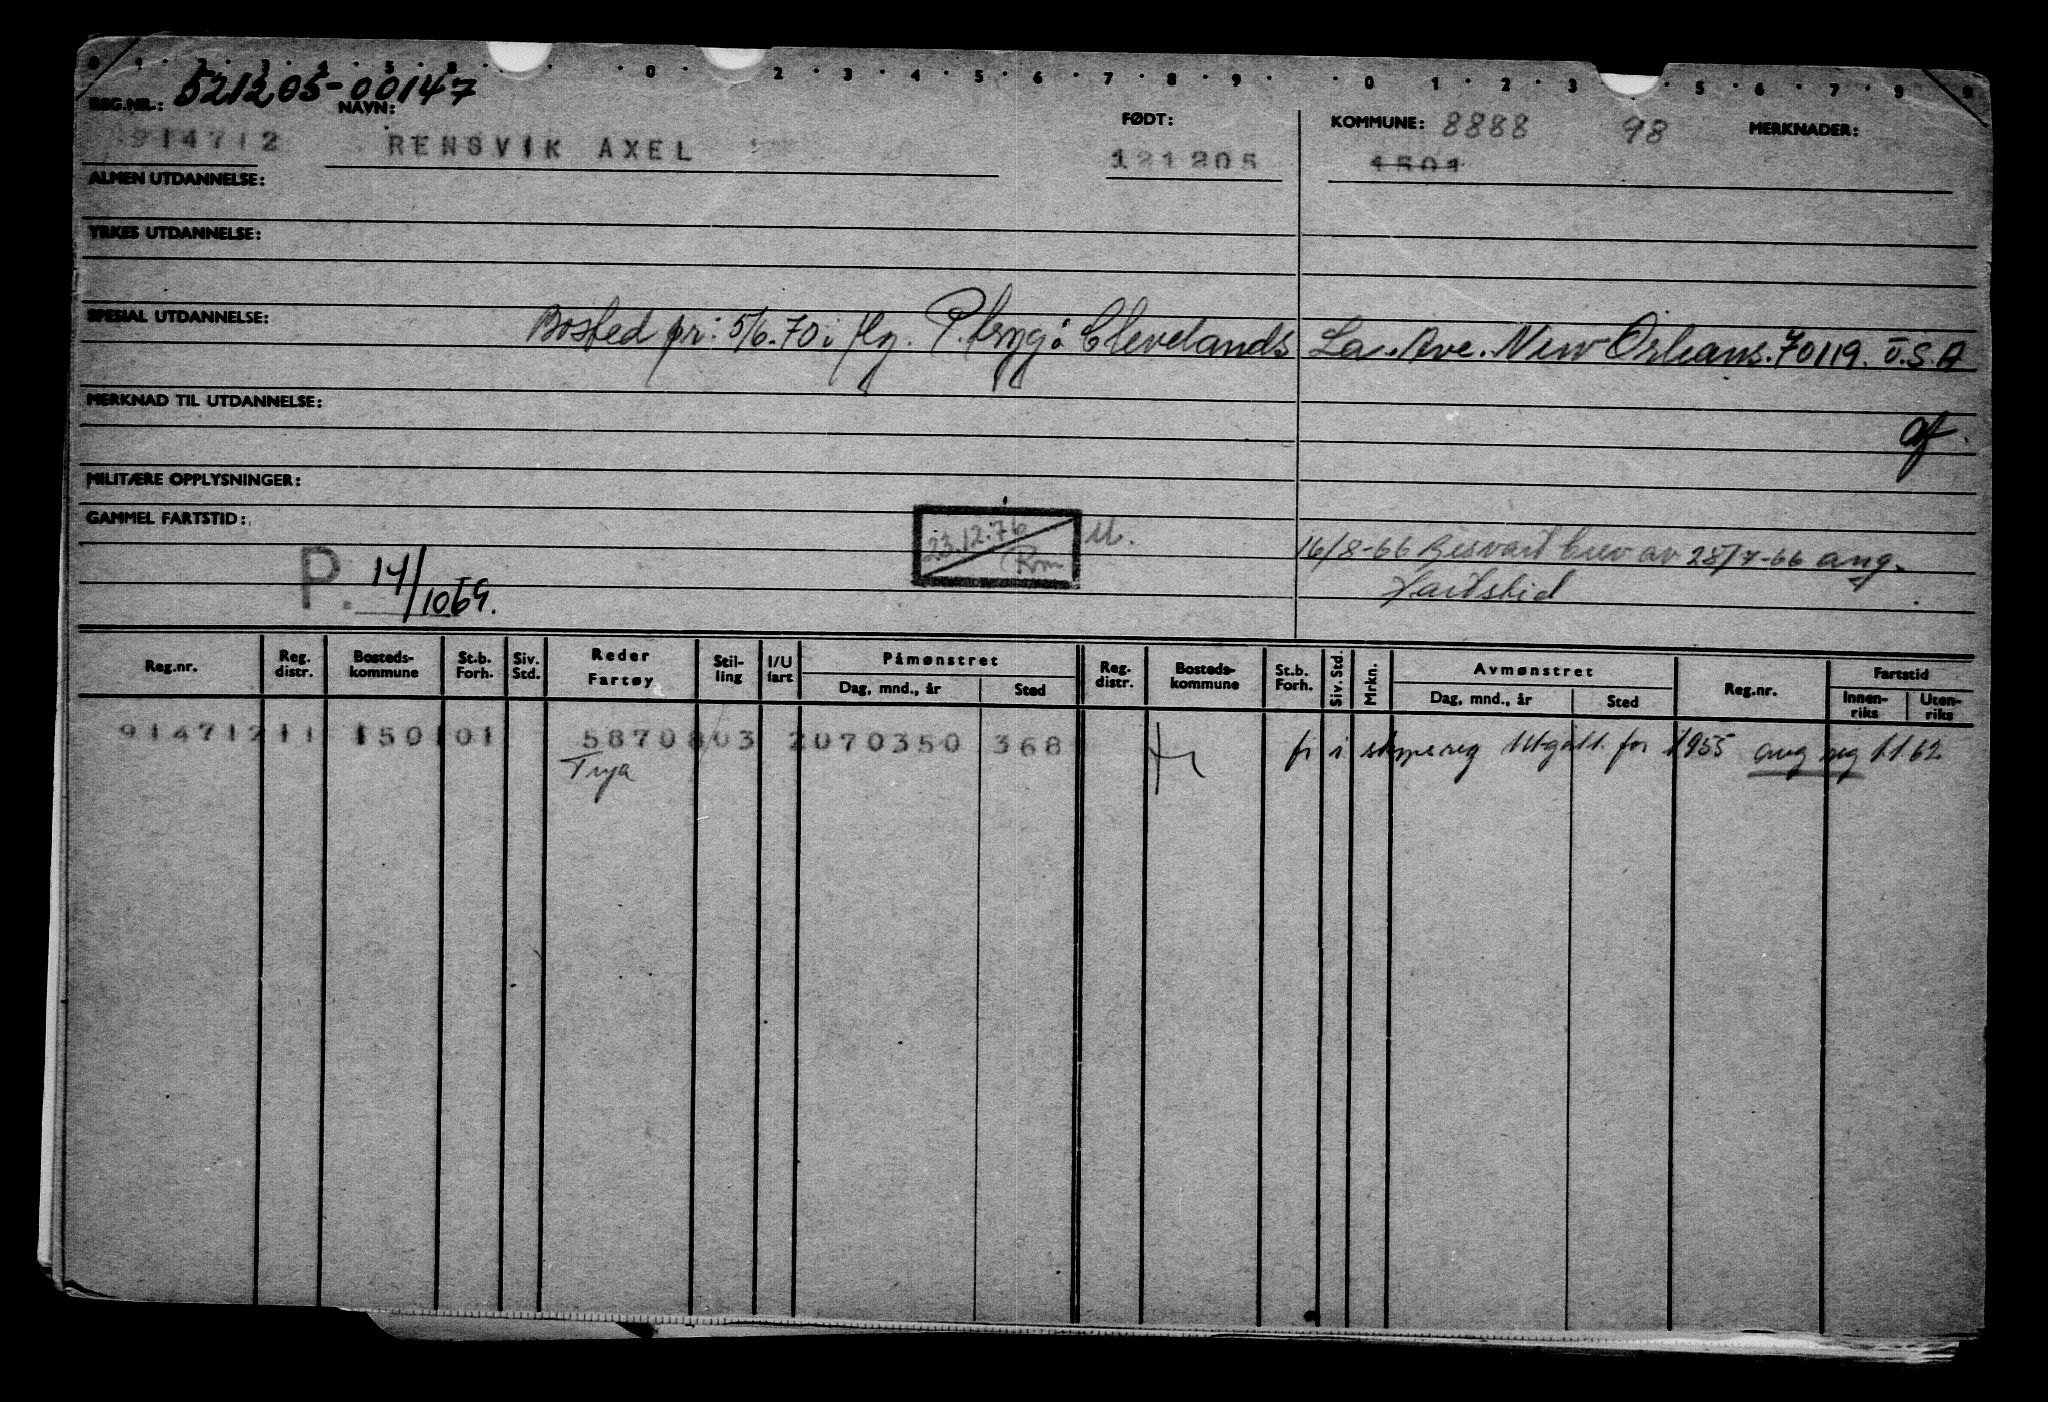 521205-00147
REG.NR.: NAVN: FØDT: KOMMUNE: 8888 98 MERKNADER:
914712 RENSVIK AXEL 121205 1501
ALMEN UTDANNELSE:
YRKES UTDANNELSE:
SPESIAL UTDANNELSE:
Bosted pr: 5/6-70 i flg. P. tryg: Clevelands La. Ave. New Orleans. 70119. U.S.A
MERKNAD TIL UTDANNELSE:
af.
MILITÆRE OPPLYSNINGER:
GAMMEL FARTSTID:
23.12.76 Rm M.
16/8-66 Besvart brev av 28/7-66 ang.
Fartstid
P. 14/1069.
Reg.nr. Reg. distr. Bosteds-kommune St.b. Forh. Siv. Std. Reder Fartøy Stil-ling I/U fart Påmønstret Dag, mnd., år Sted Reg. distr. Bosteds-kommune St.b. Forh. Siv. Std. Mrkn. Avmønstret Dag, mnd., år Sted Reg.nr. Fartstid Innen-riks Uten-riks
914712 11 1501 01 58708 03 2 070350 368 fr i skipsreg Utgått for 1955 ang reg 1.1.62
Tuja